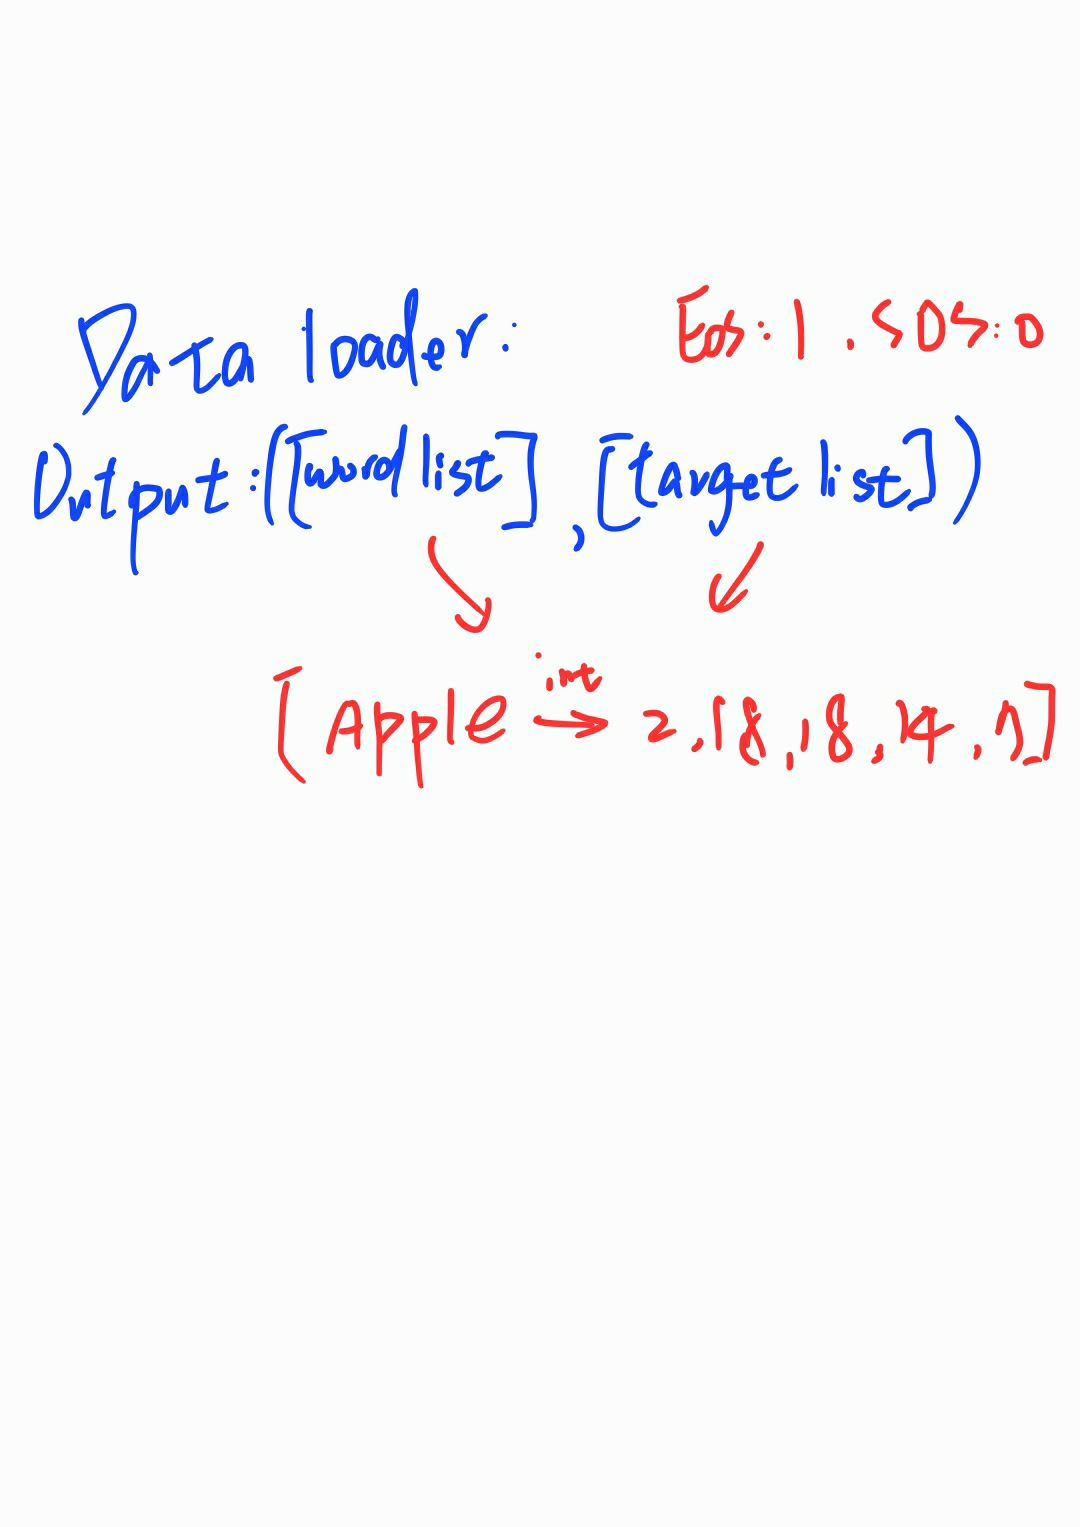 Data loader: Eos: 1 . SOS: 0
Output: ([word list], [target list])
int
[Apple → 2, 18, 18, 14, ]